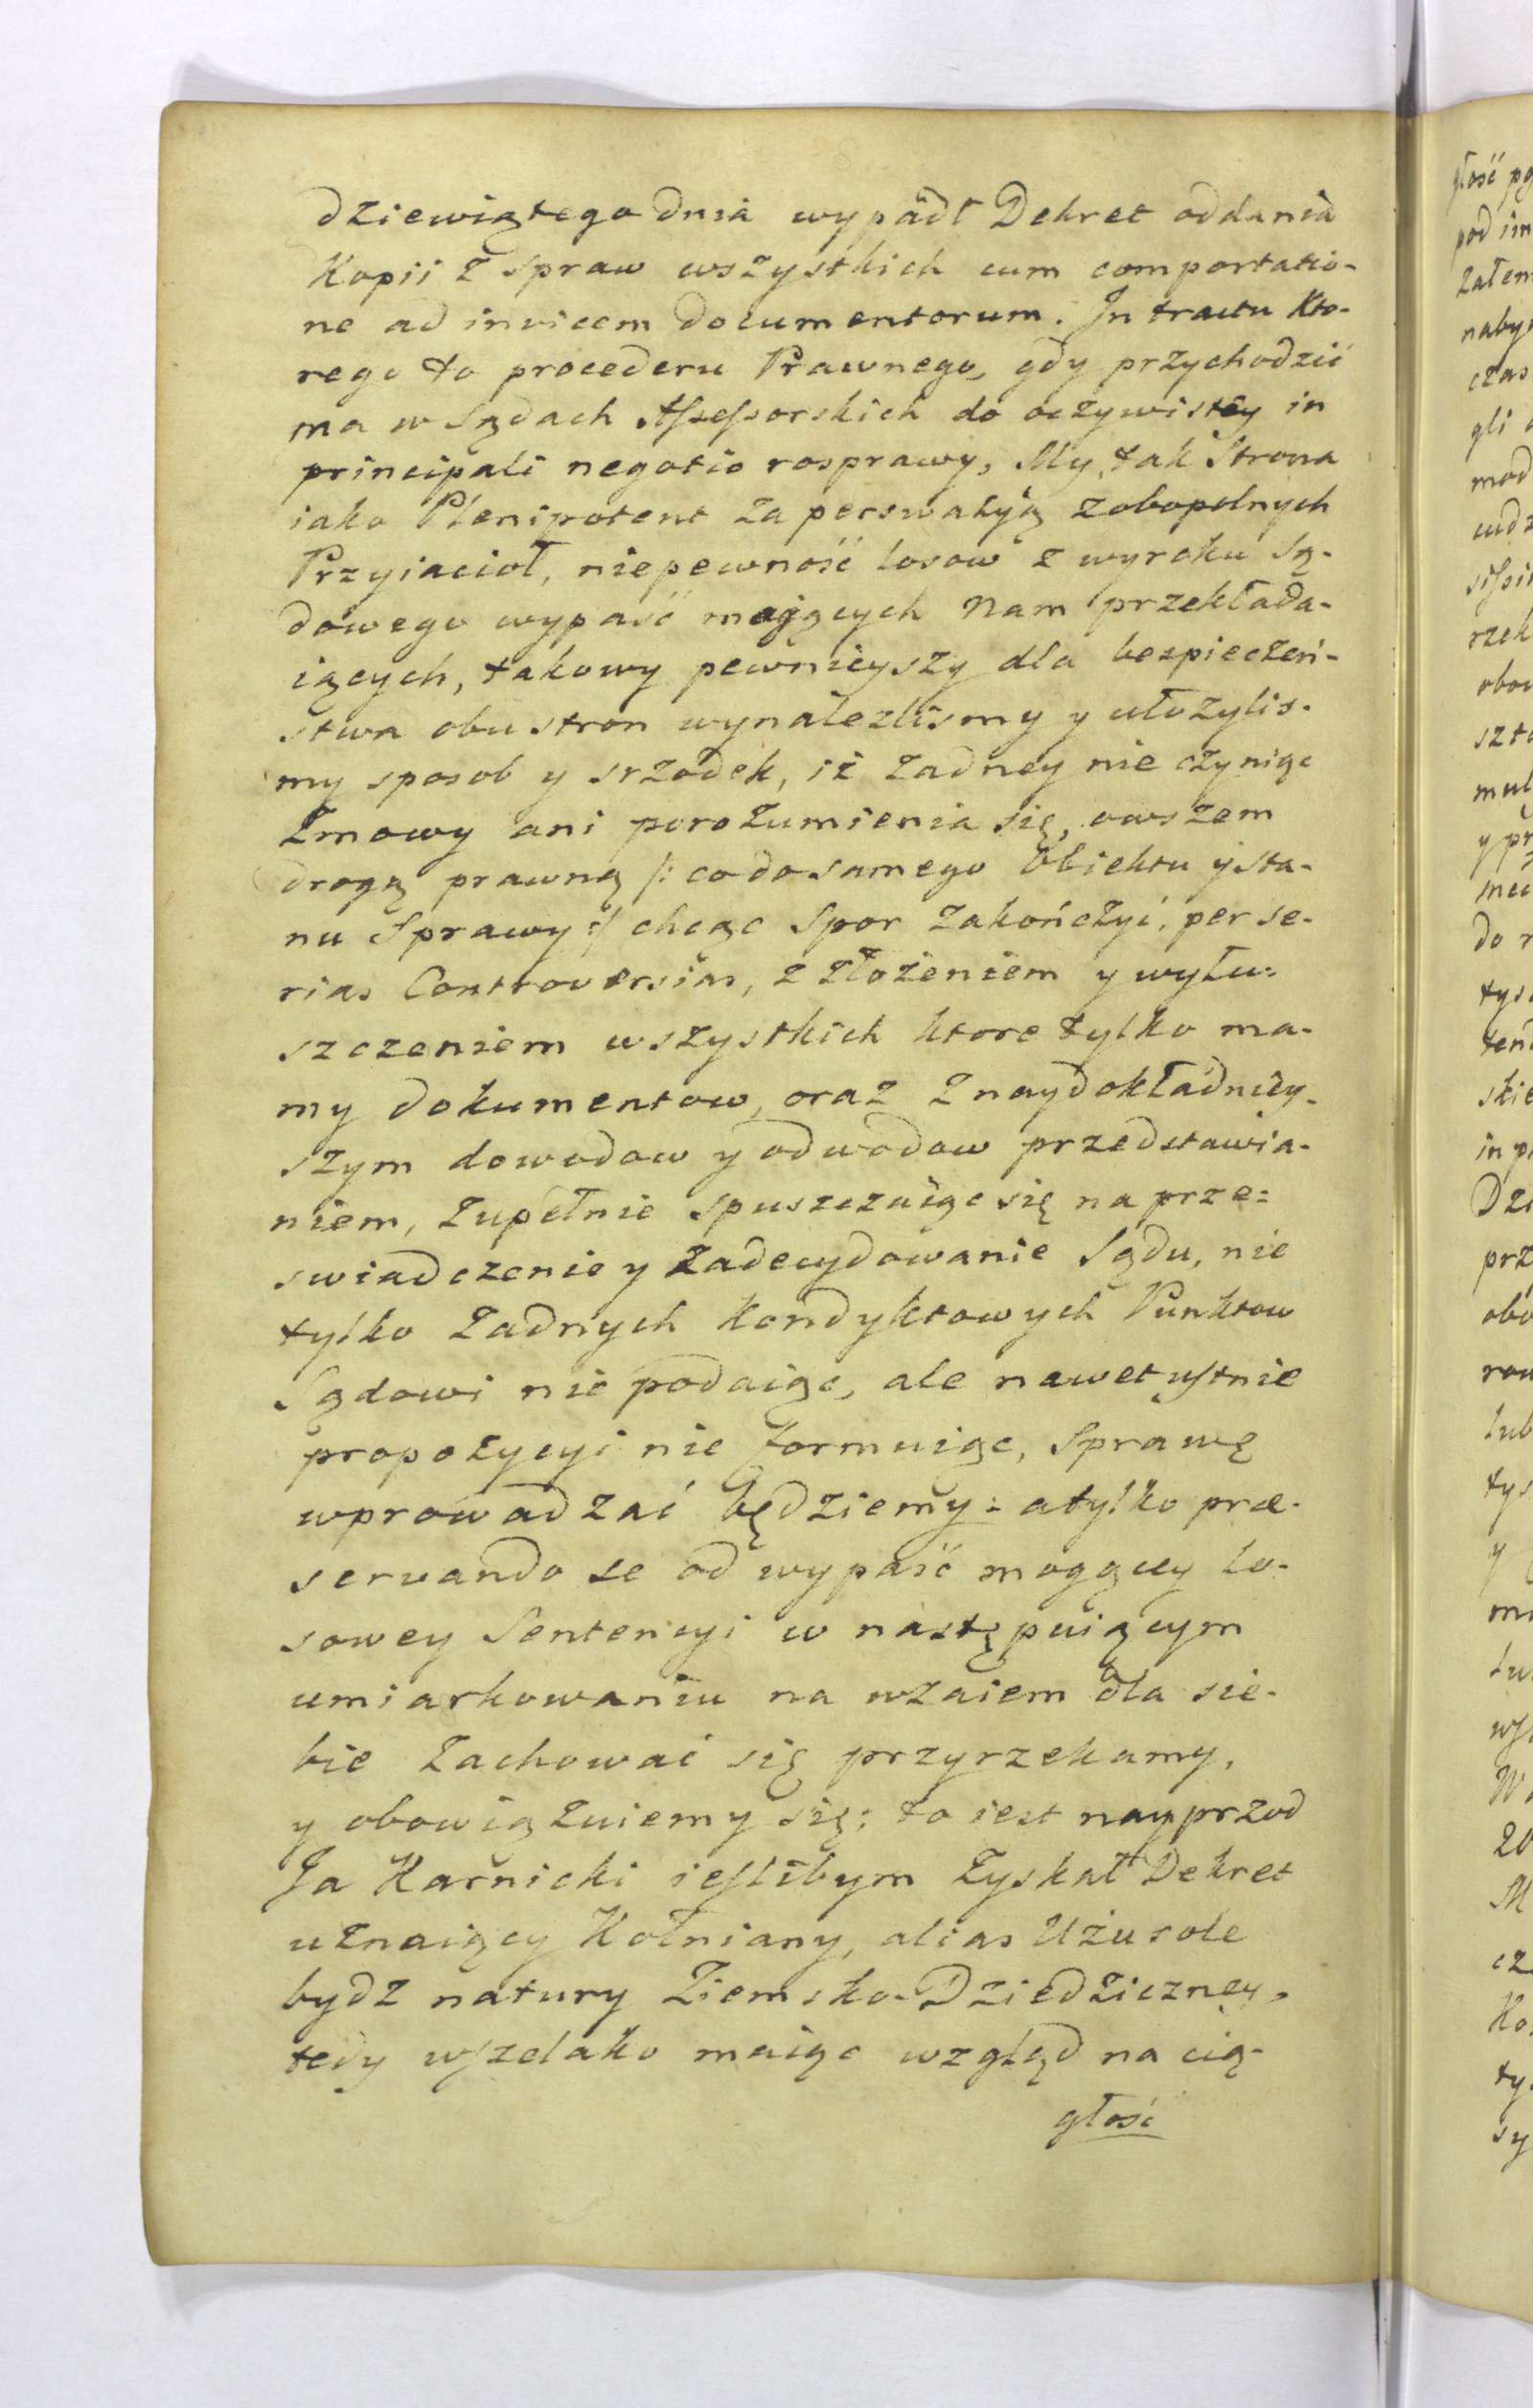 dziewiątego dnia wypadł Dekret oddania
Kopii z spraw wszystkich cum comportatio-
ne ad invicem documentorum. In tractu Kto-
rego to procederu Prawnego, gdy przychodzić
ma w Sądach Assessorskich do oczywistey in
principali negotio rosprawy, My, tak Strona
iako Plenipotent za perswazyią zobopolnych
Przyiacioł, niepewność losow z wyroku Są-
dowego wypaść maiących Nam przekłada-
iących, takowy pewnieyszy dla bezpieczeń-
stwa obu stron wynalezlismy y ułożylis-
my sposob y srzodek, iż żadney nie czyniąc
Zmowy ani porozumienia się, owszem
drogą prawną /: co do samego Obiektu y sta-
nu Sprawy :/ chcąc Spor zakończyć, per se-
rias Controversias, z złożeniem y wyłu-
szczeniem wszystkich ktore tylko ma-
my dokumentow, oraz z naydokładniey-
szym dowodow y odwodow przedstawia-
niem, zupełnie spuszczaiąc się na prze-
swiadczenie y zadecydowanie Sądu, nie
tylko żadnych Kondyktowych Punktow
Sądowi nie podaiąc, ale nawet ustnie
propozycyi nie formuiąc, Sprawę
wprowadzać będziemy: a tylko præ-
servando se od wypaść mogącey lo-
sowey Sentencyi w następuiącym
umiarkowaniu na wzaiem dla sie-
bie zachować się przyrzekamy,
y obowiązuiemy się; to iest nayprzod
Ja Karnicki iesslibym zyskał Dekret
uznaiący Kołniany, alias Użusole
bydz natury Ziemsko-Dziedziczney,
tedy wszelako maiąc wzgląd na cią-
głość
głość
pod
czas
gli
do
in
Dzi
prz
lub
tys
y
20
M
cz